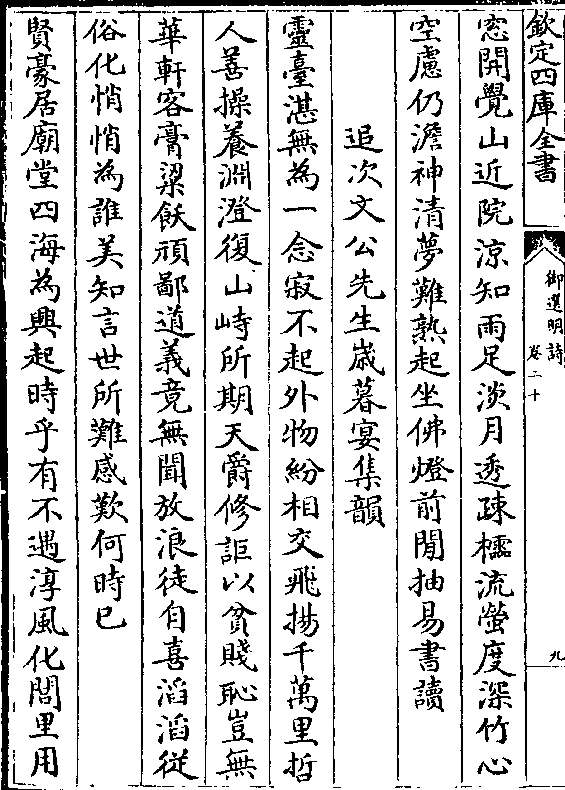 欽定四庫全書
御選明詩
卷二十
九
窓開覺山近院涼知雨足淡月透疎櫺流螢度深竹心
空慮仍澹神清夢難熟起坐佛燈前閒抽易書讀
追次文公先生歲暮宴集韻
靈臺湛無為一念寂不起外物紛相交飛揚千萬里哲
人善操養淵澄復山峙所期天爵修詎以貧賤恥豈無
華軒容膏粱飫頑鄙道義竟無聞放浪徒自喜滔滔從
俗化悄悄為誰美知言世所難感歎何時已
賢豪居廟堂四海為興起時乎有不遇淳風化閭里用